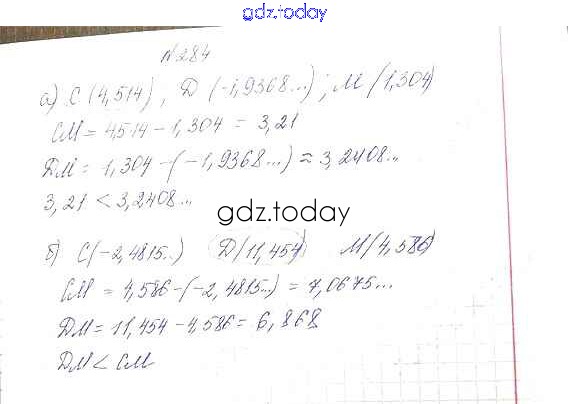 gdz.today
№284
а) C(4,514), Д(-1,9368...); M(1,304)
CM = 4,514 - 1,304 = 3,21
ДM = 1,304 - (-1,9368...) ≈ 3,2408...
3,21 < 3,2408...
gdz.today
б) C(-2,4815..) Д(11,454) M(4,586)
CM = 4,586 - (-2,4815..) = 7,0675...
ДM = 11,454 - 4,586 = 6,868
ДM < CM
gdz.today